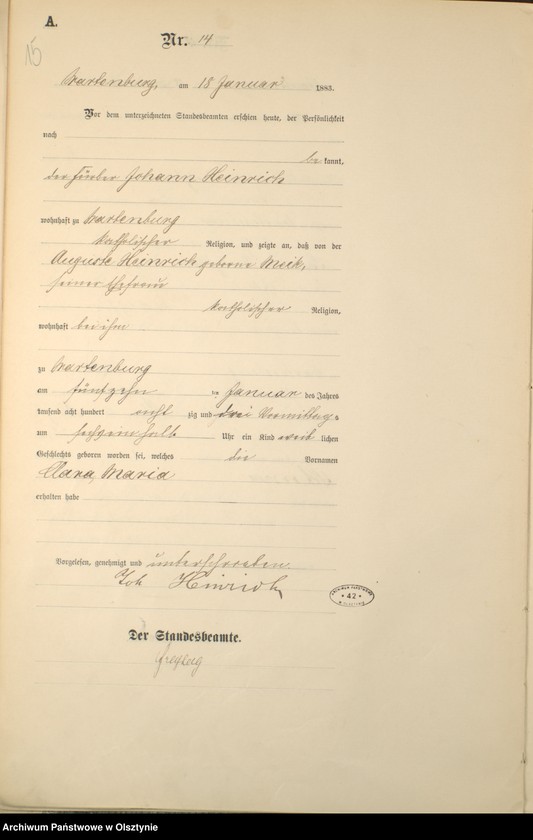 A.
15
Nr. 14
Wartenburg, am 18 Januar 1883.
Vor dem unterzeichneten Standesbeamten erschien heute, der Persönlichkeit
nach
be kannt,
der Färber Johann Heinrich
wohnhaft zu Wartenburg
katholischer Religion, und zeigte an, daß von der
Auguste Heinrich geborne
seiner Ehefrau
katholischer Religion,
wohnhaft bei ihm
zu Wartenburg
am fünfzehn ten Januar des Jahres
tausend acht hundert acht zig und drei Vormittags
um sechseinhalb Uhr ein Kind weib lichen
Geschlechts geboren worden sei, welches die Vornamen
Clara, Maria
erhalten habe
Vorgelesen, genehmigt und unterschrieben
Joh Heinrich
ARCHIWUM PAŃSTWOWE
* 42 *
W OLSZTYNIE
Der Standesbeamte.
Archiwum Państwowe w Olsztynie